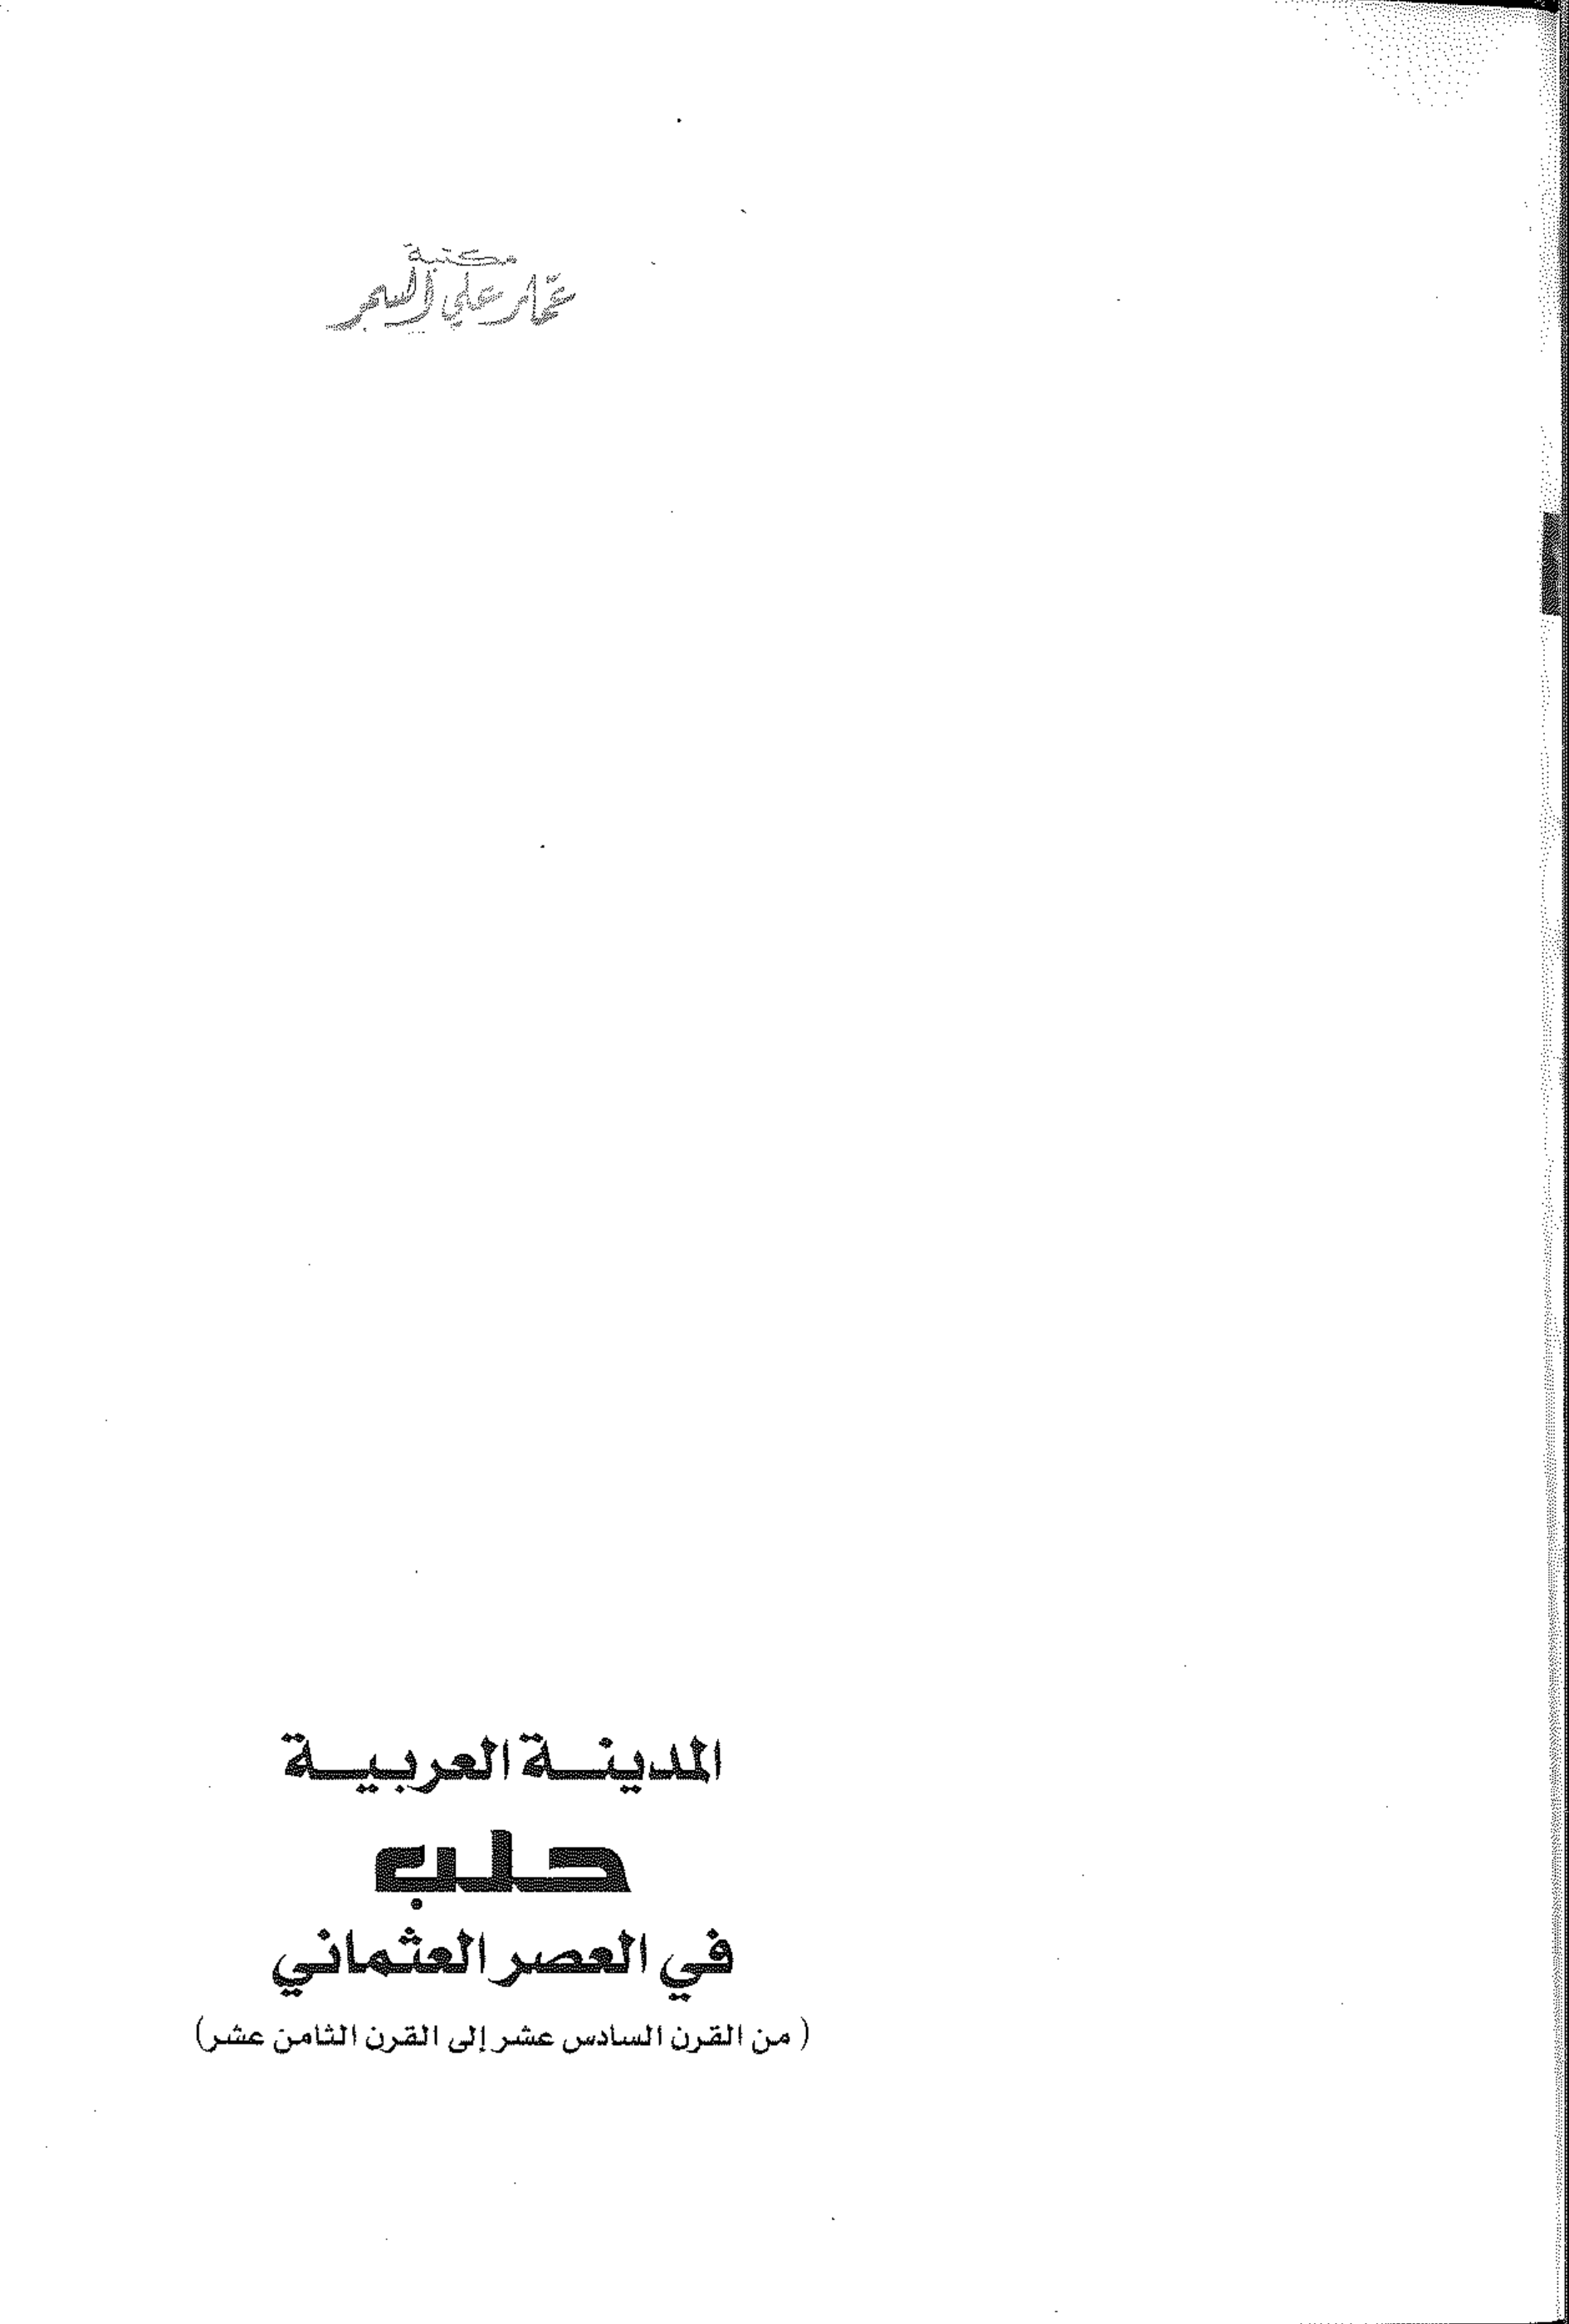 مكتبة
عمّار علي السمر
المدينة العربية
حلب
في العصر العثماني
( من القرن السادس عشر إلى القرن الثامن عشر)